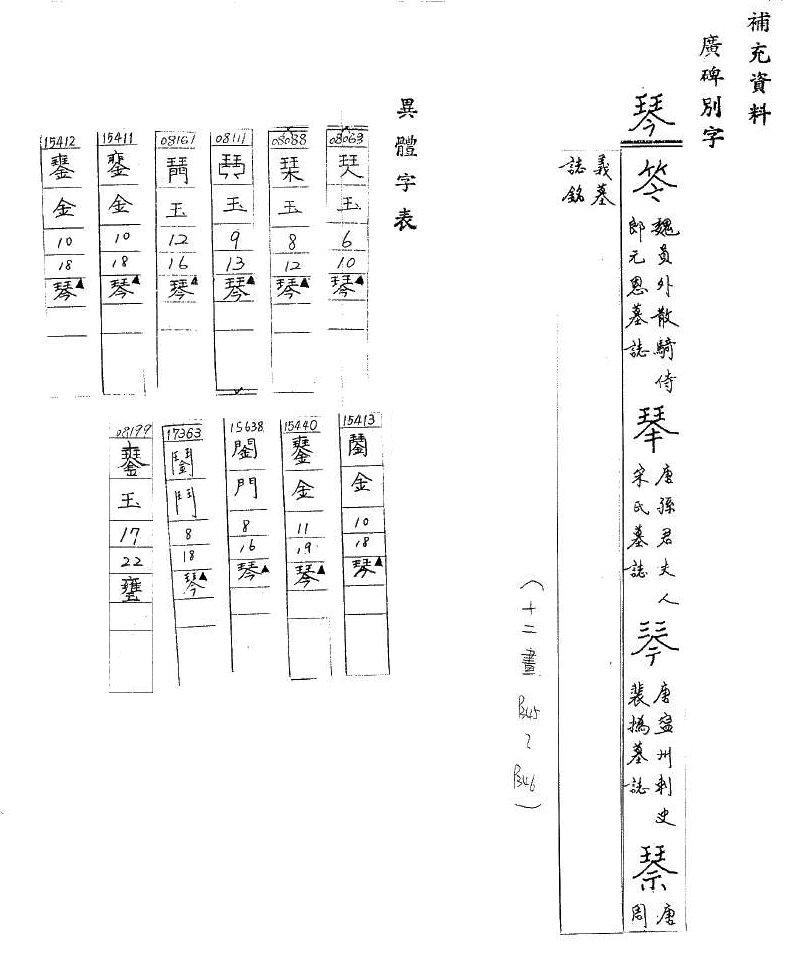 補充資料
廣碑別字
琴
笒
魏員外散騎侍
郎元恩墓誌
唐孫君夫人
宋氏墓誌
唐州刺史
裴撝墓誌
唐
周
義墓
誌銘
(十二畫 B45~B46)
異體字表
08063
玉
6
10
琴▲
08088
琹
玉
8
12
琴▲
08111
玉
9
13
琴▲
08161
玉
12
16
琴▲
15411
金
10
18
琴▲
15412
金
10
18
琴▲
15413
金
10
18
琴▲
15440
金
11
19
琴▲
15638
門
8
16
琴▲
17363
鬥
8
18
琴▲
08199
玉
17
22